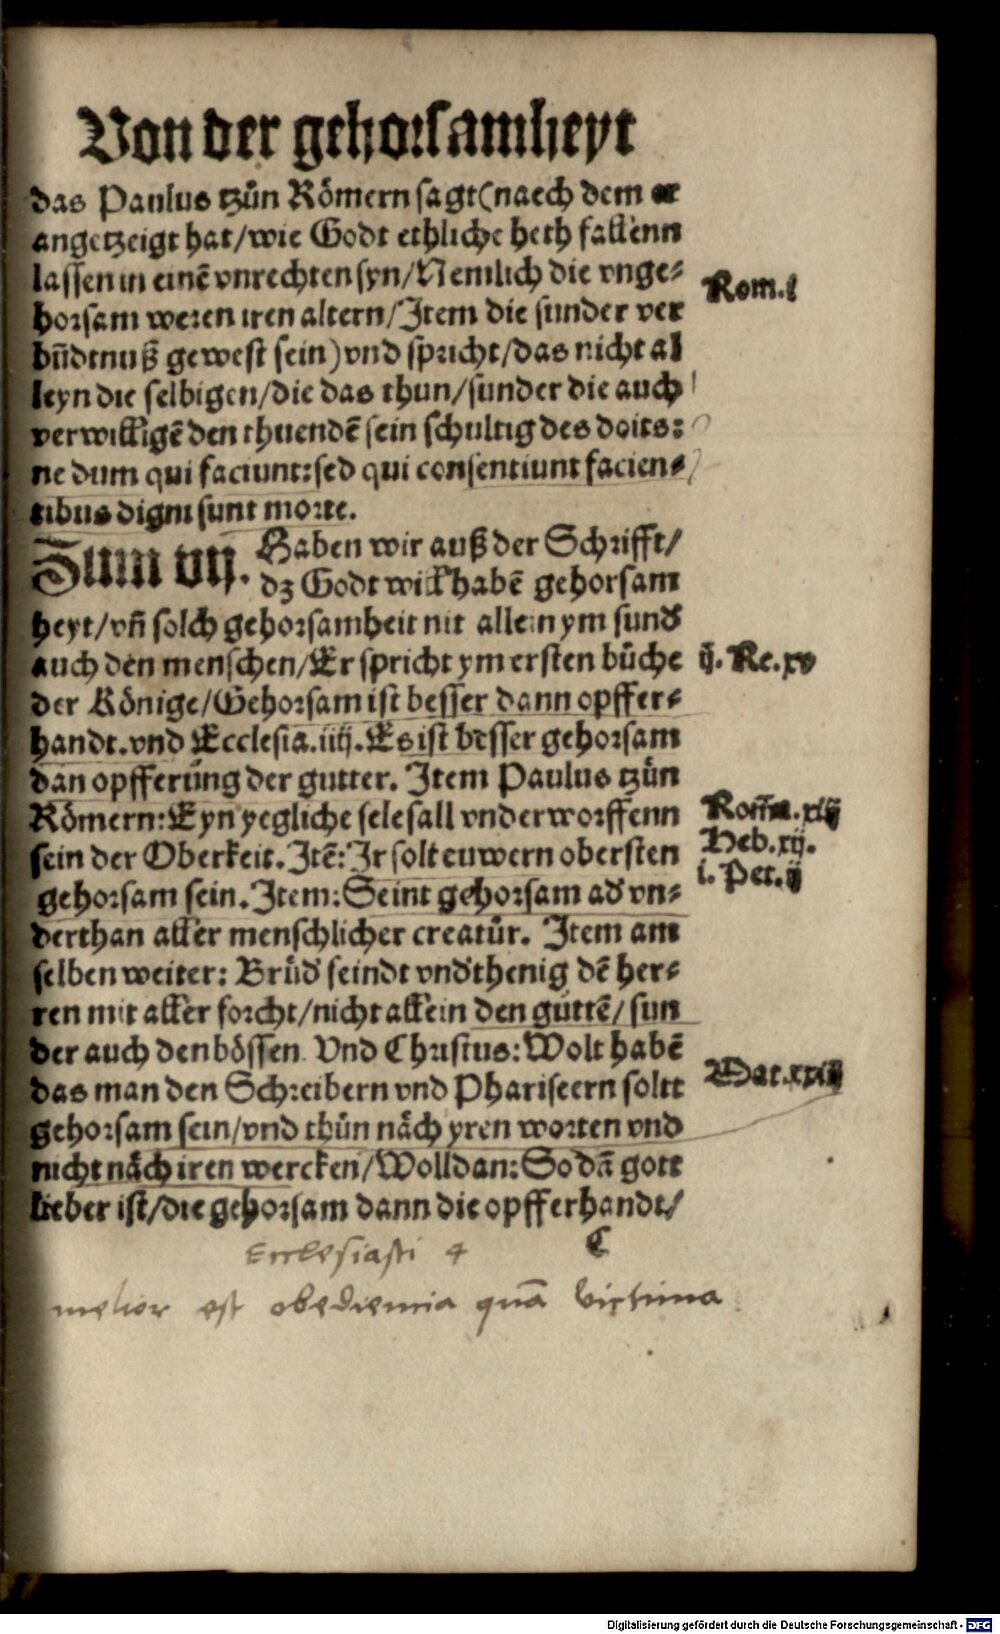 Von der gehorsamheyt
das Paulus tzůn Römern sagt (naech dem er
angetzeigt hat/wie Godt ethliche heth fallenn
lassen in einē vnrechten syn/Nemlich die vnge⸗
horsam weren iren altern/Item die sunder ver
bůdtnuß gewest sein) vnd spricht/das nicht al
leyn die selbigen/die das thun/sunder die auch
verwilligē den thuendē sein schultig des doits:
ne dum qui faciunt: sed qui consentiunt facien⸗
tibus digni sunt morte.
Rom.i
Zum vij. Haben wir auß der Schrifft/
dz Godt will habē gehorsam
heyt/vn̄ solch gehorsamheit nit allein ym sund͛
auch den menschen/Er spricht ym ersten bůche
der Könige/Gehorsam ist besser dann opffer⸗
handt. vnd Ecclesia.iiij. Es ist besser gehorsam
dan opfferůng der gutter. Item Paulus tzůn
Römern: Eyn yegliche sele sall vnderworffenn
sein der Oberkeit. Itē: Ir solt euwern obersten
gehorsam sein. Item: Seint gehorsam ad͛ vn⸗
derthan aller menschlicher creatůr. Item am
selben weiter: Brůd͛ seindt vnd͛thenig dē her⸗
ren mit aller forcht/nicht allein den gůttē/sun
der auch den bössen. Vnd Christus: Wolt habē
das man den Schreibern vnd Phariseern soltt
gehorsam sein/vnd thůn näch yren worten vnd
nicht näch iren wercken/Wolldan: So dā gott
lieber ist/die gehorsam dann die opfferhandt/
ij. Re.xv
Rom̄a.xiij
Heb.xij.
i. Pet.ij
Mat.xxiij
C
Ecclesiasti 4
melior est obediencia quā victima
Digitalisierung gefördert durch die Deutsche Forschungsgemeinschaft - DFG